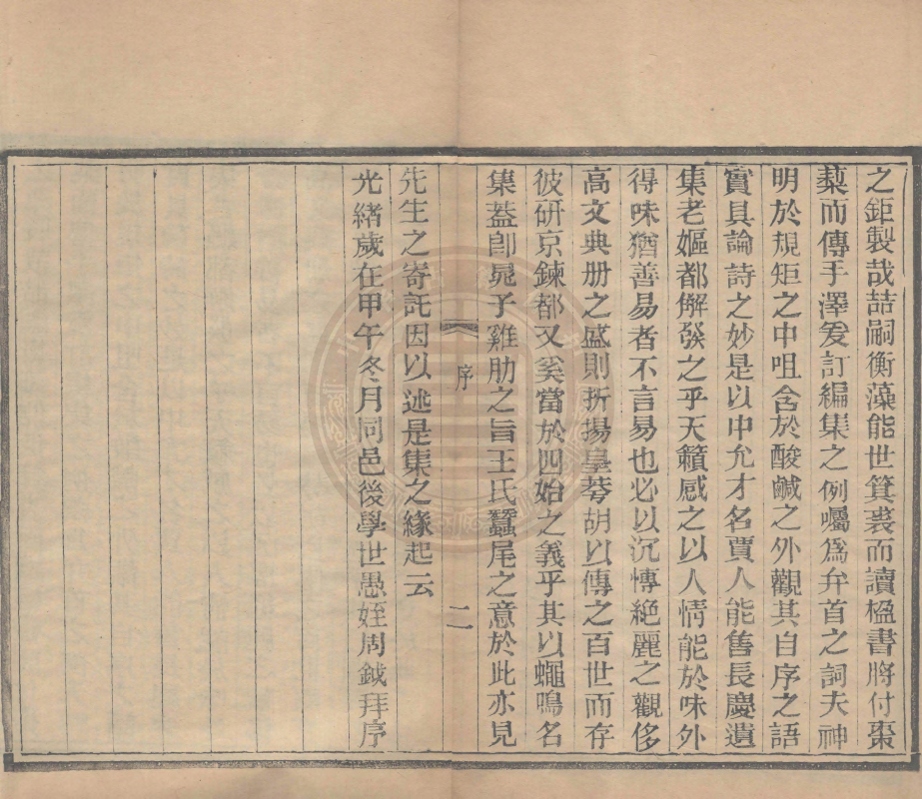 之鉅製哉喆嗣衡藻能世箕裘而讀楹書將付棗
蔾而傳手澤爰訂編集之例囑爲弁首之詞夫神
明於規矩之中咀含於酸鹹之外觀其自序之語
實具論詩之妙是以中允才名賈人能售長慶遺
集老嫗都解發之乎天籟感之以人情能於味外
得味猶善易者不言易也必以沉博絕麗之觀侈
高文典册之盛則折揚皇荂胡以傳之百世而存
彼研京鍊都又奚當於四始之義乎其以蠅鳴名
集蓋卽晁子雞肋之旨王氏蠶尾之意於此亦見
序
二
先生之寄託因以述是集之緣起云
光緒歲在甲午冬月同邑後學世愚姪周鉞拜序